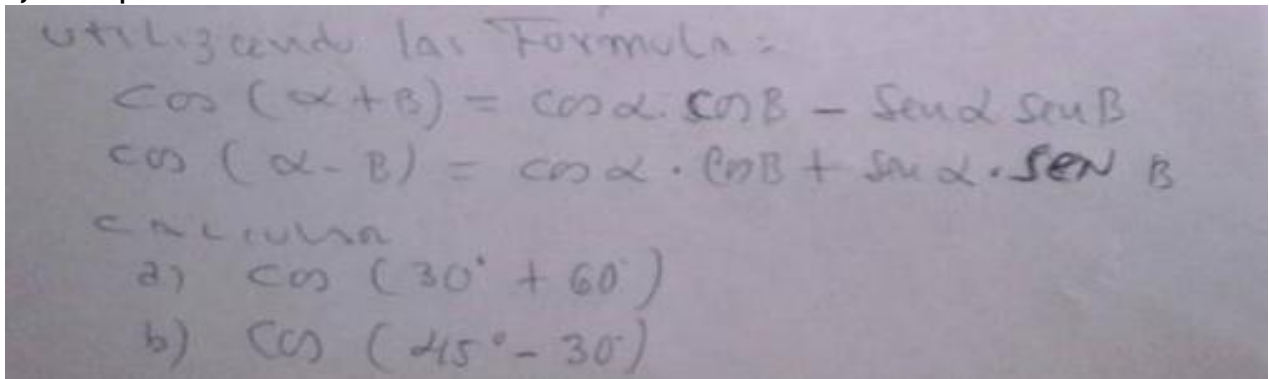 utilizando las Formula:
cos (α + B) = cos α . cos B - Sen α sen B
cos (α - B) = cos α . cos B + sen α . SEN B
CALCULAR
a) cos (30° + 60°)
b) cos (45° - 30°)